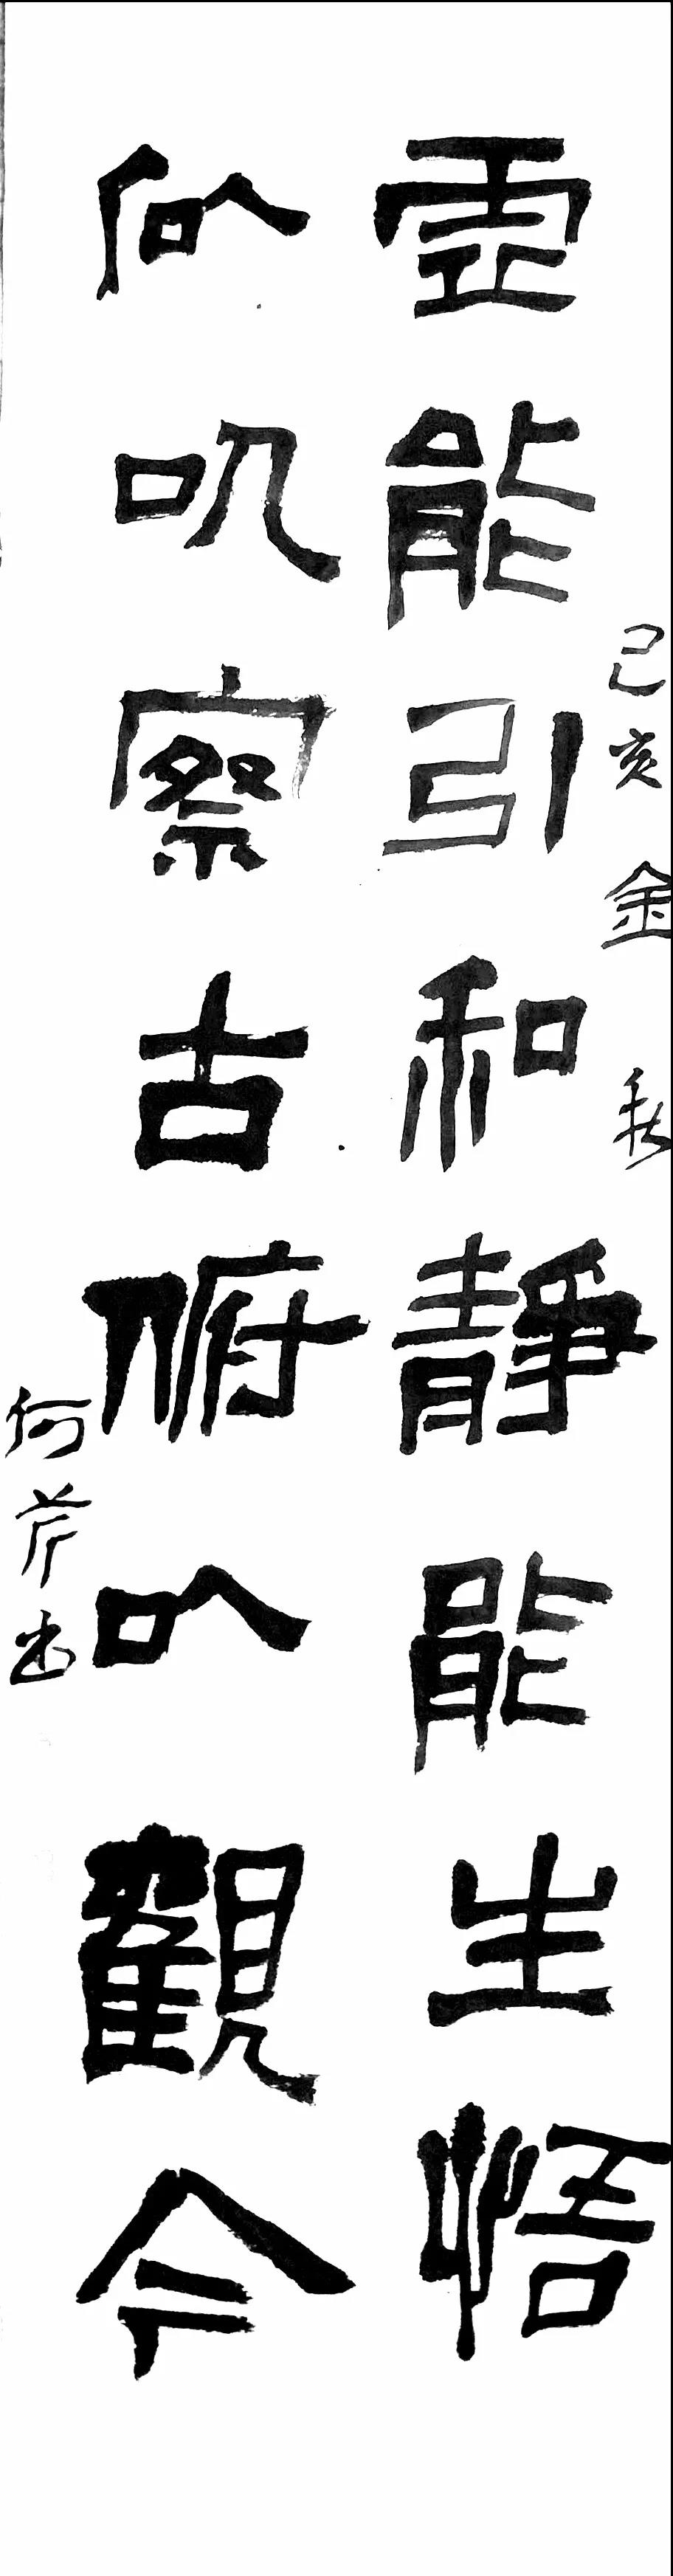 己亥金秋
虛能引和靜能生悟
仰以察古俯以觀今
何芹书